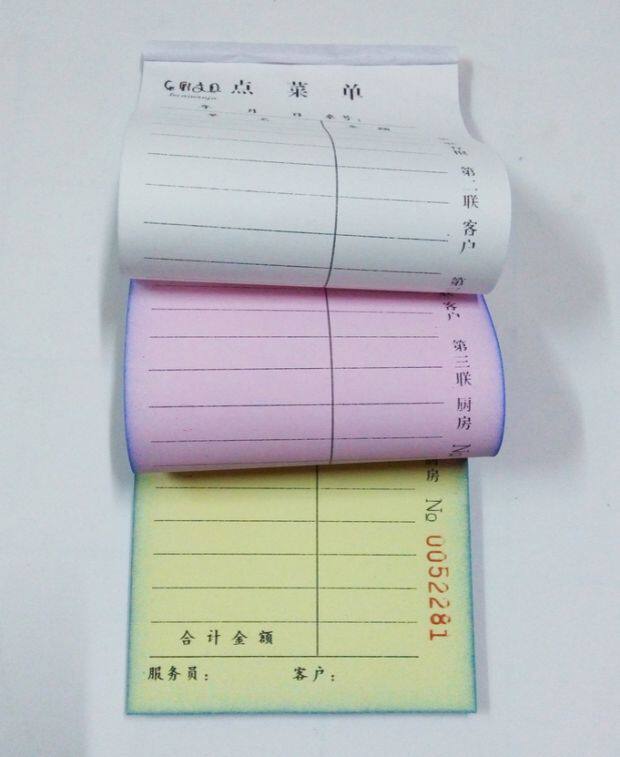 点 菜 单
年 月 日 桌号：
第二联 客户
客户
第三联 厨房 No
房 No 0052281
合 计 金 额
服务员： 客户：